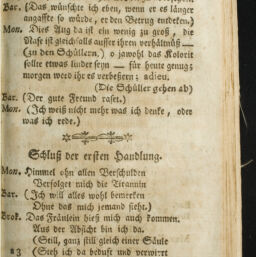 Bar. (Das wünschte ich eben, wenn er es länger
angaffte so würde, er den Betrug entdeken.)
Mon. Dies Aug da ist ein wenig zu groß, die
Nase ist gleichfalls ausser ihren verhältnuß —
(zu den Schüllern.) o jawohl das Kolorit
sollte etwas linder seyn — für heute genug;
morgen werd ihr es verbeßern; adieu.
(Die Schüller gehen ab)
Bar. (Der gute Freund raset.)
Mon. (Ich weiß nicht mehr was ich denke, oder
was ich rede.)
Schluß der ersten Handlung.
Mon. Himmel ohn allen Verschulden
Verfolget mich die Tirannin
Bar. (Ich will alles wohl bemerken
Ohne das mich jemand sieht.)
Brok. Das Fräulein hieß mich auch kommen.
Aus der Absicht bin ich da.
(Still, ganz still gleich einer Säule
a3 (Steh ich da beduft und verwirrt